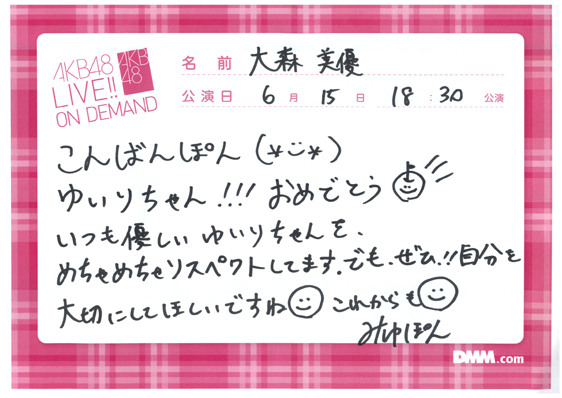 AKB48
LIVE!!
ON DEMAND
AKB
48
名 前 大森 美優
公演日 6 月 15 日 18 : 30 公演
こんばんぽん(*¨*)
ゆいりちゃん!!! おめでとう
いつも優しいゆいりちゃんを、
めちゃめちゃリスペクトしてます。でも、ぜひ!!自分を
大切にしてほしいですね これからも
みゆぽん
DMM.com